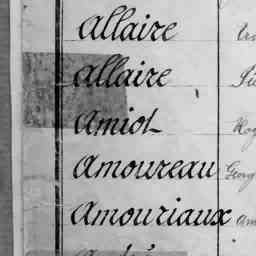 Allaire
Allaire
Amiot
Amoureau Georg
Amouriaux